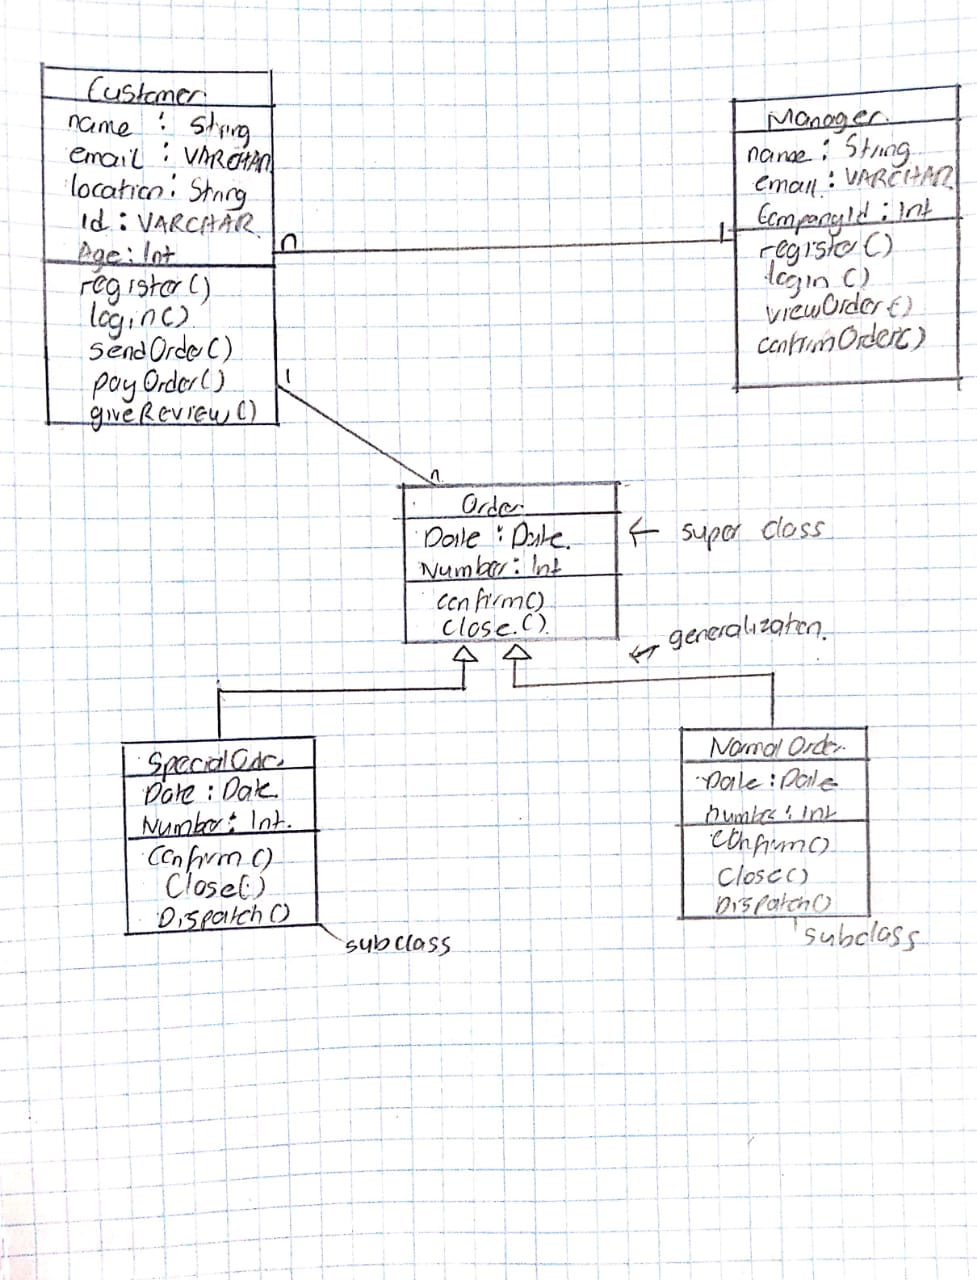 Customer
name : String
email : VARCHAR
location : String
Id : VARCHAR
Age : Int
register()
login()
sendOrder()
payOrder()
giveReview()
n
1
Manager
name : String
email : VARCHAR
CompanyId : Int
register()
login ()
viewOrder()
confirmOrder()
1
n
Order
Date : Date
Number : Int
confirm()
close.()
← super class
← generalizaton.
SpecialOrder
Date : Date
Number : Int.
Confirm()
Close()
Dispatch()
subclass
Normal Order
Date : Date
number : Int
Confirm()
Close()
Dispatch()
subclass